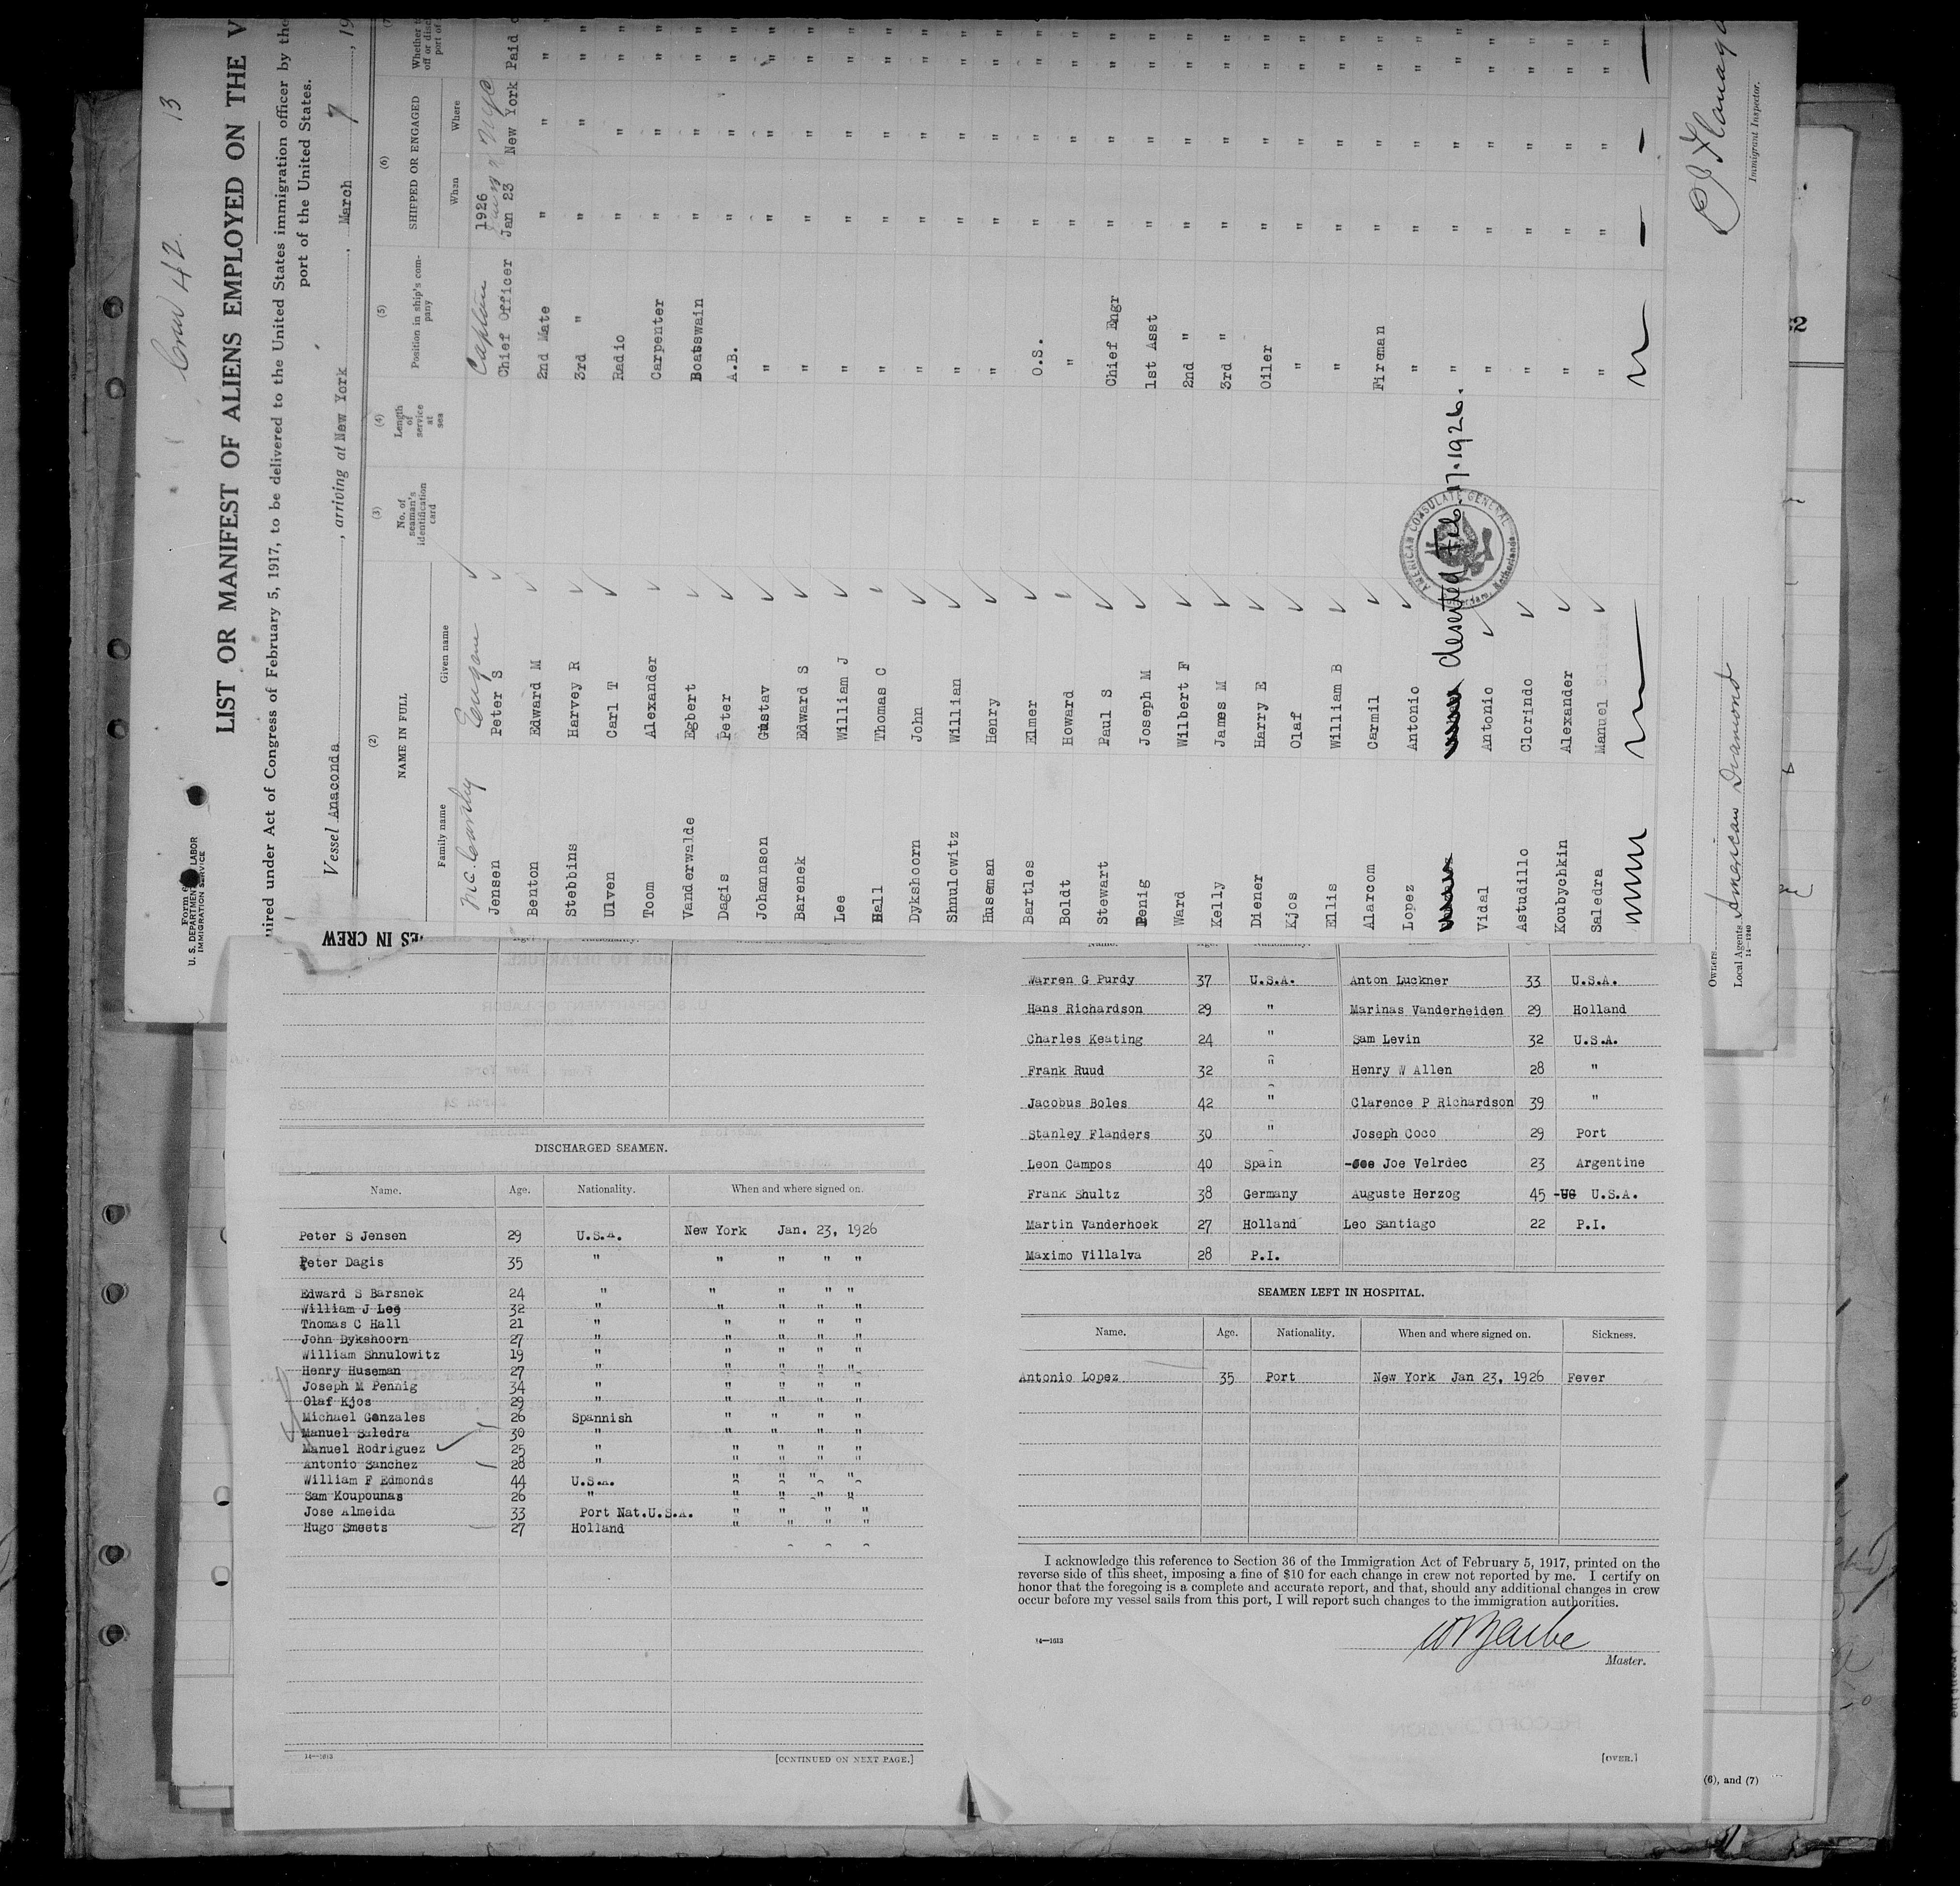 13
Crew 42
Form
U. S. DEPARTMENT LABOR
IMMIGRATION SERVICE
LIST OR MANIFEST OF ALIENS EMPLOYED ON THE V
uired under Act of Congress of February 5, 1917, to be delivered to the United States immigration officer by the
port of the United States.
Vessel Anaconda, arriving at New York, March 7, 19
(2) (3) (4) (5) (6)
NAME IN FULL
Family name Given name
No. of seaman's identification card
Length of service at sea
Position in ship's company
SHIPPED OR ENGAGED
When Where
McCarthy Eugene Captain
1926
Jensen Peter S Chief Officer Jan 23 New York Paid
Benton Edward M 2nd Mate " " " "
Stebbins Harvey R 3rd " " " " "
Ulven Carl T Radio " " " "
Toom Alexander Carpenter " " " "
Vanderwalde Egbert Boatswain " " " "
Dagis Peter A.B. " " " "
Johannson Gustav " " " " "
Barenek Edward S " " " " "
Lee William J " " " " "
Hall Thomas C " " " " "
Dykshoorn John " " " " "
Shnulowitz Willian " " " " "
Huseman Henry " " " " "
Bartles Elmer O.S. " " " "
Boldt Howard " " " " "
Stewart Paul S Chief Engr " " " "
Penig Joseph M 1st Asst " " " "
Ward Wilbert F 2nd " " " " "
Kelly James M 3rd " " " " "
Diener Harry E Oiler " " " "
Kjos Olaf " " " " "
Ellis William B " " " " "
Alarcom Carmil Fireman " " " "
Lopez Antonio " " " " "
deserted Feb. 17. 1926. " " " " "
Vidal Antonio " " " " "
Astudillo Clorindo " " " " "
Koubychkin Alexander " " " " "
Saledra Manuel " " " " "
AMERICAN CONSULATE GENERAL
Netherlands
Owners
Local Agents American Diamond
14—1240
Immigrant Inspector.
ES IN CREW
DISCHARGED SEAMEN.
Name. Age. Nationality. When and where signed on.
Peter S Jensen 29 U.S.A. New York Jan. 23, 1926
Peter Dagis 35 " " " " "
Edward S Barsnek 24 " " " " "
William J Lee 32 " " " " "
Thomas C Hall 21 " " " " "
John Dykshoorn 27 " " " " "
William Shnulowitz 19 " " " " "
Henry Huseman 27 " " " " "
Joseph M Pennig 34 " " " " "
Olaf Kjos 29 " " " " "
Michael Gonzales 26 Spannish " " " "
Manuel Saledra 30 " " " " "
Manuel Rodriguez 25 " " " " "
Antonio Sanchez 28 " " " " "
William F Edmonds 44 U.S.A. " " " "
Sam Koupounas 26 " " " " "
Jose Almeida 33 Port Nat.U.S.A. " " " "
Hugo Smeets 27 Holland " " " "
14—1613
[CONTINUED ON NEXT PAGE.]
Warren G Purdy 37 U.S.A. Anton Luckner 33 U.S.A.
Hans Richardson 29 " Marinas Vanderheiden 29 Holland
Charles Keating 24 " Sam Levin 32 U.S.A.
Frank Ruud 32 " Henry W Allen 28 "
Jacobus Boles 42 " Clarence P Richardson 39 "
Stanley Flanders 30 " Joseph Coco 29 Port
Leon Campos 40 Spain Joe Velrdec 23 Argentine
Frank Shultz 38 Germany Auguste Herzog 45 U.S.A.
Martin Vanderhoek 27 Holland Leo Santiago 22 P.I.
Maximo Villalva 28 P.I.
SEAMEN LEFT IN HOSPITAL.
Name. Age. Nationality. When and where signed on. Sickness.
Antonio Lopez 35 Port New York Jan 23, 1926 Fever
I acknowledge this reference to Section 36 of the Immigration Act of February 5, 1917, printed on the
reverse side of this sheet, imposing a fine of $10 for each change in crew not reported by me. I certify on
honor that the foregoing is a complete and accurate report, and that, should any additional changes in crew
occur before my vessel sails from this port, I will report such changes to the immigration authorities.
14—1613
Master.
[OVER.]
(6), and (7)